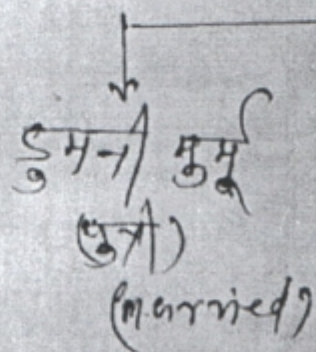 डुमनी मुर्मू
(पुत्री)
(married)